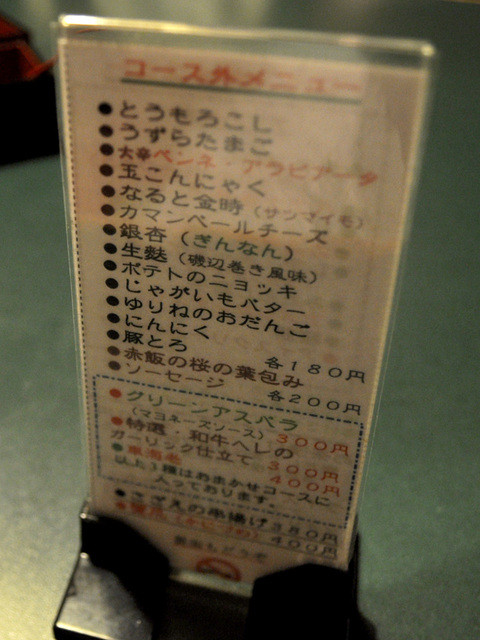 コース外メニュー
●とうもろこし
●うずらたまご
●大辛ペンネ・アラビアータ
●玉こんにゃく
●なると金時(サツマイモ)
●カマンベールチーズ
●銀杏(ぎんなん)
●生麩(磯辺巻き風味)
●ポテトのニョッキ
●じゃがいもバター
●ゆりねのおだんご
●にんにく 各180円
●豚とろ
●赤飯の桜の葉包み
●ソーセージ 各200円
●グリーンアスパラ
(マヨネーズソース) 300円
●特選 和牛ヘレの
ガーリック仕立て 300円
●車海老 400円
以上3種はおまかせコースに
入っております。
●さざえの串揚げ 380円
400円